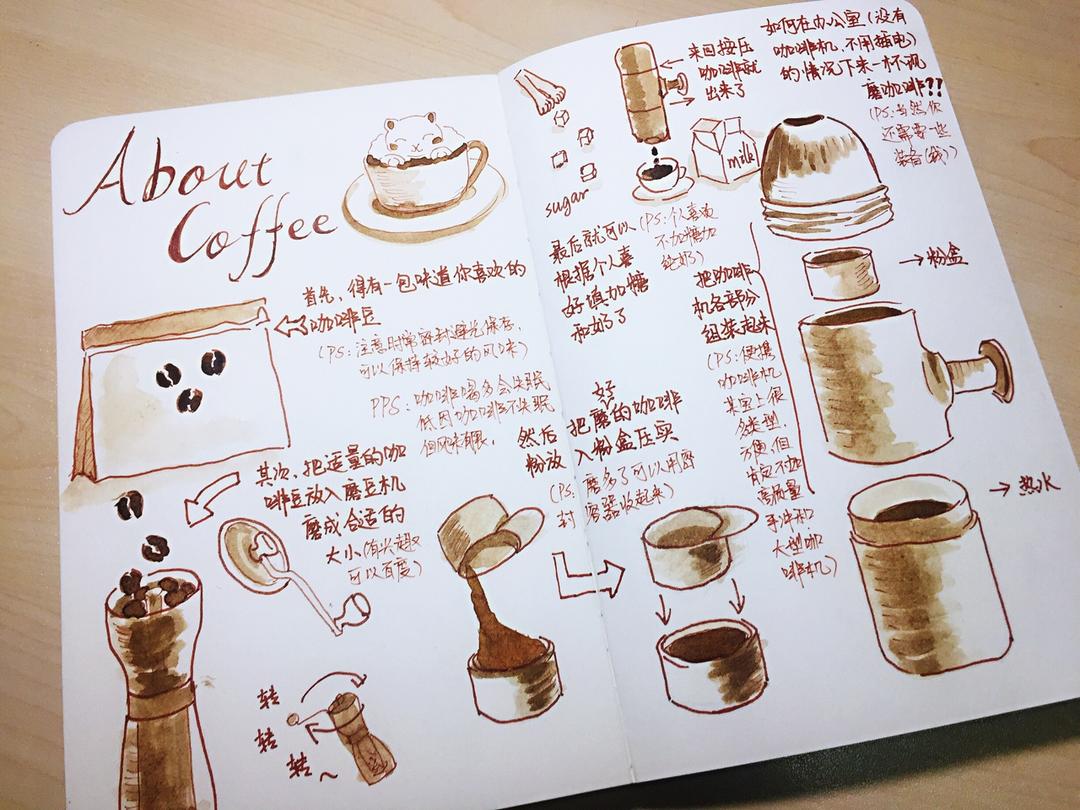 About
Coffee
首先，得有一包味道你喜欢的
咖啡豆
(PS：注意时常密封避光保存，
可以保持较好的风味)
PPS：咖啡喝多会失眠
低因咖啡不失眠
但风味有限。
其次，把适量的咖
啡豆放入磨豆机
磨成合适的
大小(有兴趣
可以百度)
转
转
转~
如何在办公室(没有
咖啡机，不用插电)
的情况下来一杯现
磨咖啡??
(PS：当然你
还需要一些
装备(钱))
然后 把磨好的咖啡
粉放入粉盒压实
(PS：磨多了可以用密
封容器收起来)
→粉盒
→热水
把咖啡
机各部分
组装起来
(PS：便携
咖啡机
其实上很
多类型，
方便，但
肯定不如
高质量
手冲和
大型咖
啡机)
来回按压
咖啡就
出来了
milk
sugar
最后就可以
根据个人喜
好填加糖
和奶了
(PS：个人喜欢
不加糖加
纯奶)